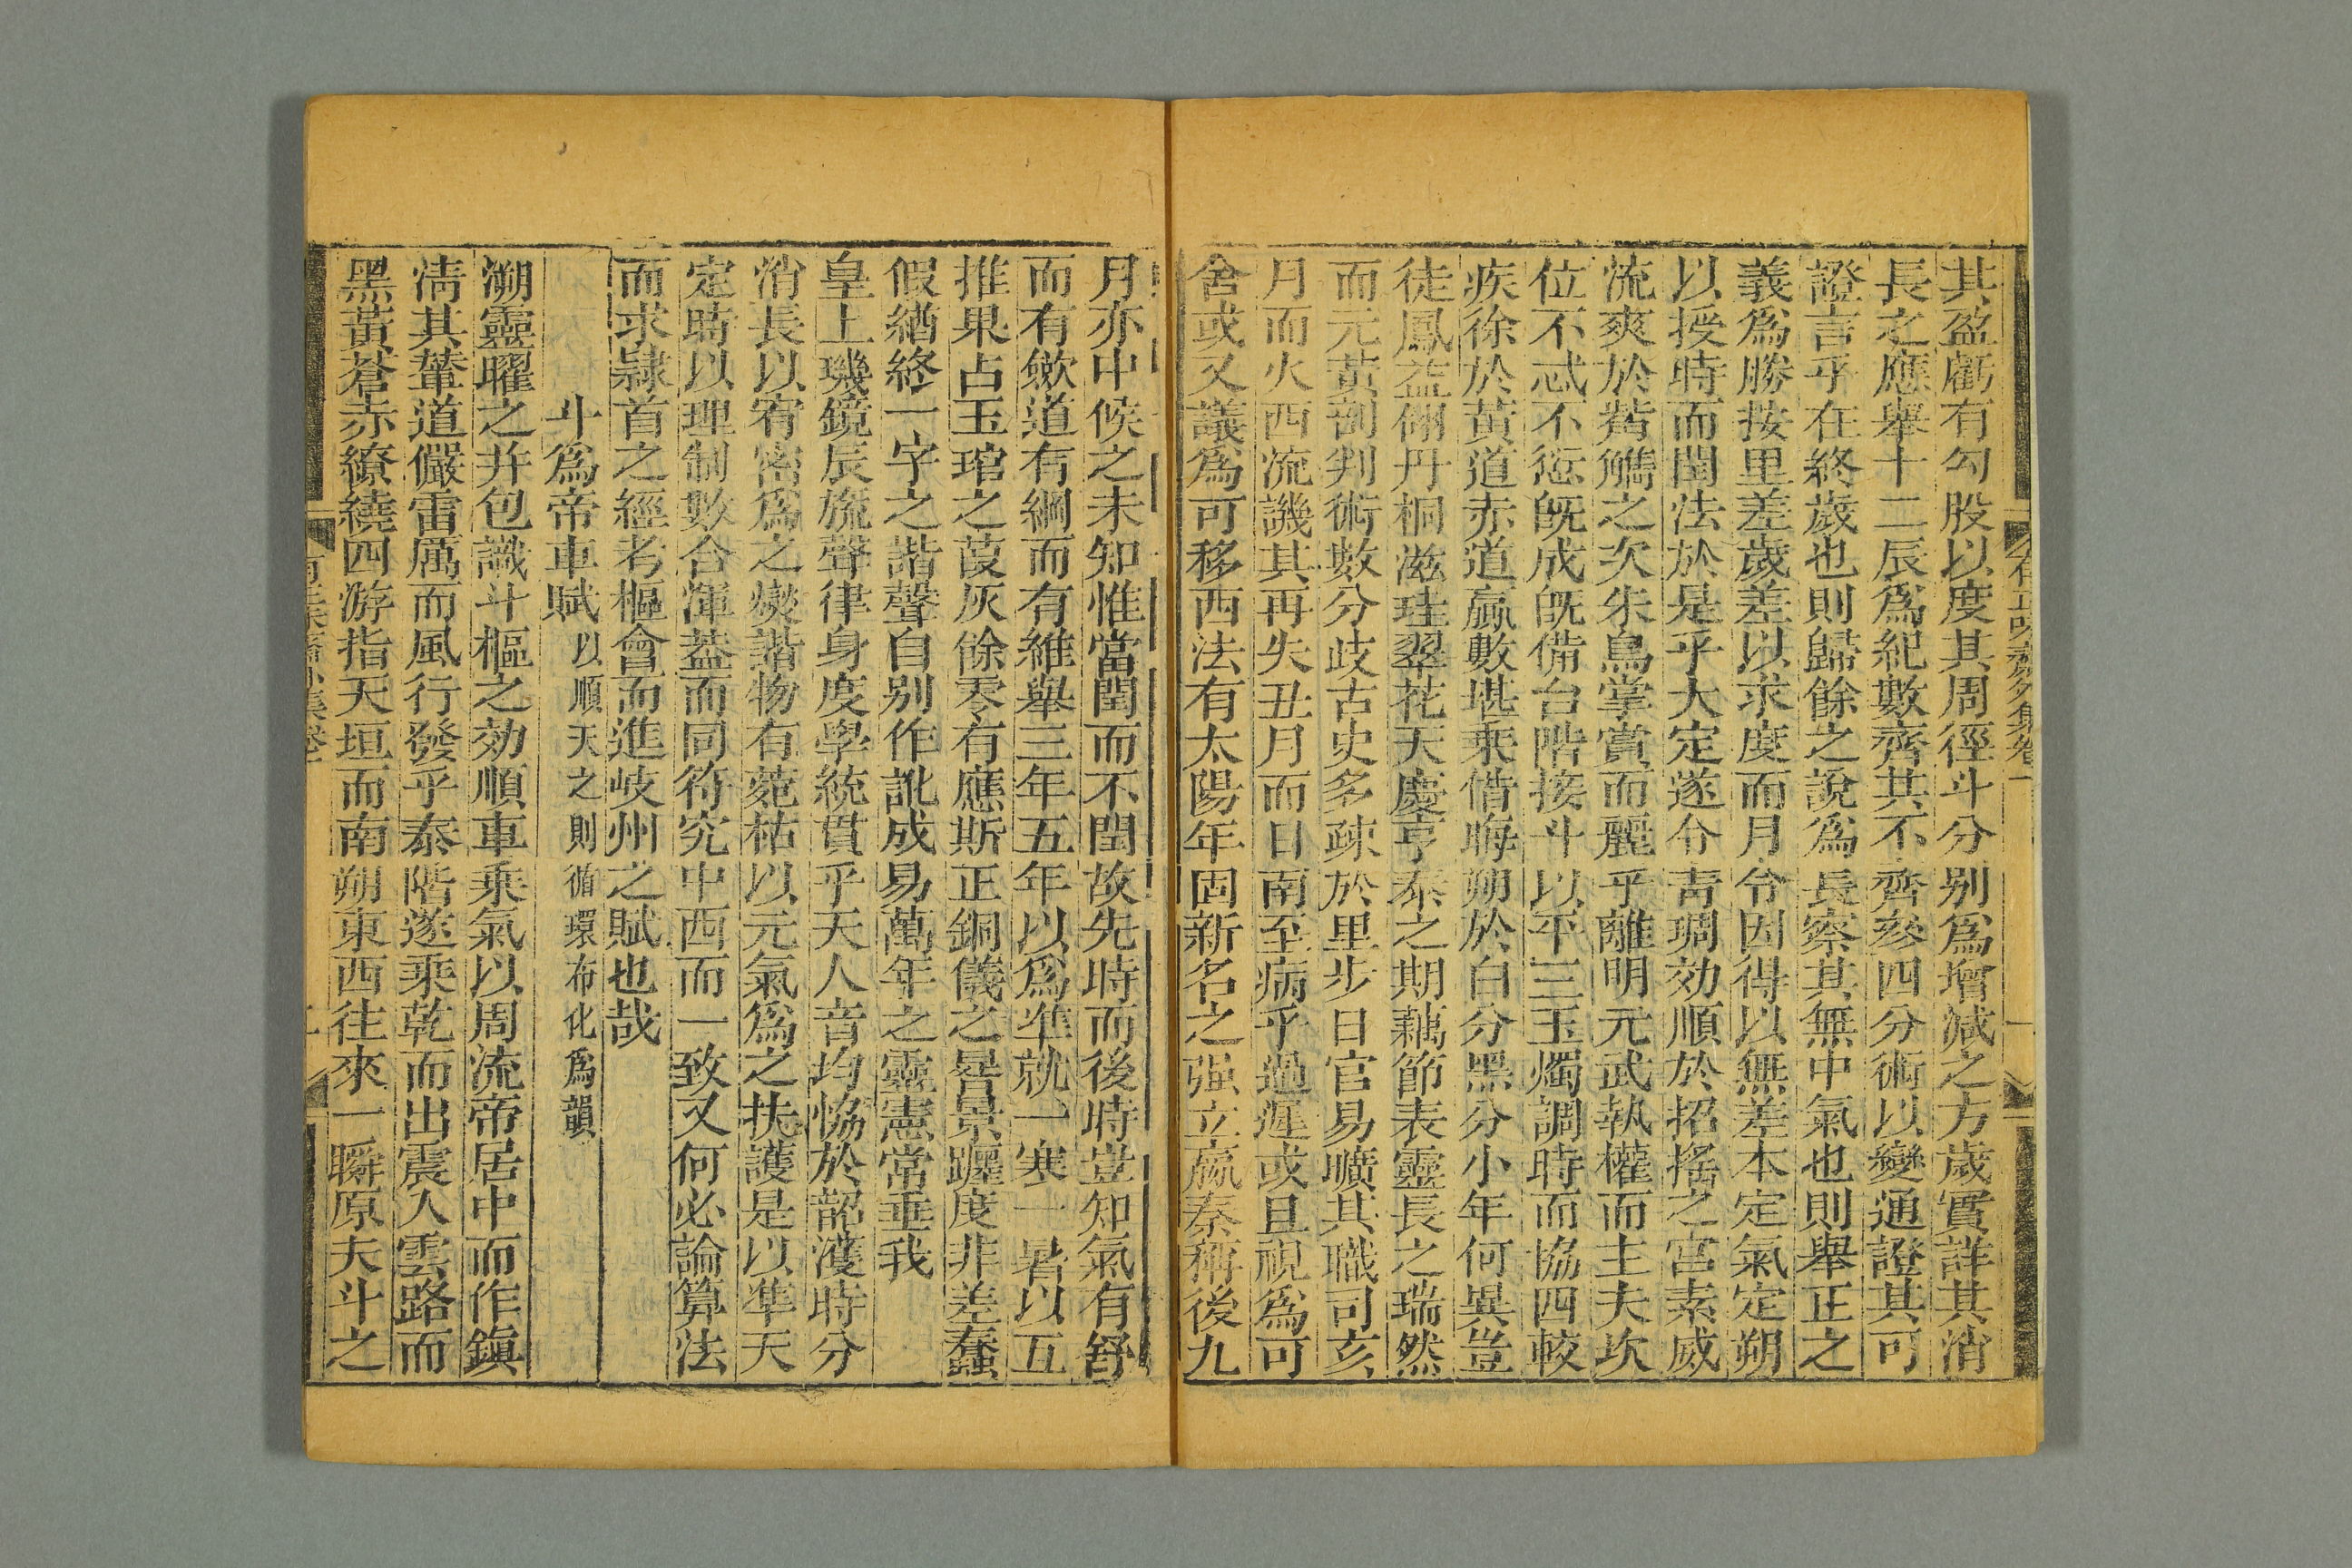 其盈虧有勾股以度其周徑斗分别爲增減之方歲實詳其消
長之應舉十二辰爲紀數齊其不齊參四分術以變通證其可
證言乎在終歲也則歸餘之說爲長察其無中氣也則舉正之
義爲勝按里差歲差以求度而月令因得以無差本定氣定朔
以授時而閏法於是乎大定遂令靑琱効順於招搖之宮素威
流爽於觜觿之次朱鳥掌賞而麗乎離明元武執權而主夫坎
位不忒不愆旣成旣備台階接斗以平三玉燭調時而協四較
疾徐於黃道赤道嬴數堪乘借晦朔於白分黑分小年何異豈
徒鳳益翎丹桐滋珪翠花天慶亨泰之期藕節表靈長之瑞然
而元黃剖判術數分歧古史多疎於里步日官易曠其職司亥
月而火西流譏其再失丑月而日南至病乎過遲或且視爲可
舍或又議爲可移西法有太陽年固新名之强立嬴秦稱後九
月亦中候之未知惟當閏而不閏故先時而後時豈知氣有舒
而有斂道有綱而有維舉三年五年以爲準就一寒一暑以五
推果占玉琯之葭灰餘零有應斯正銅儀之晷景躔度非差蠢
假緧終一字之諧聲自别作訛成易萬年之靈憲常垂我
皇上璣鏡辰旒聲律身度學統貫乎天人音均恊於韶濩時分
消長以宥密爲之燮諧物有菀枯以元氣爲之扶護是以準天
定時以理制數合渾蓋而同符究中西而一致又何必論算法
而求隷首之經考樞會而進岐州之賦也哉
斗爲帝車賦以順天之則循環布化爲韻
溯靈曜之幷包識斗樞之効順車乘氣以周流帝居中而作鎭
淸其輦道儼雷厲而風行發乎泰階遂乘乾而出震入雲路而
黑黃蒼赤繚繞四游指天垣而南朔東西往來一瞬原夫斗之